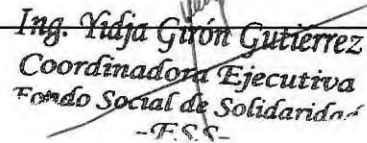 Ing. Yidja Girón Gutiérrez
Coordinadora Ejecutiva
Fondo Social de Solidaridad
-F.S.S-